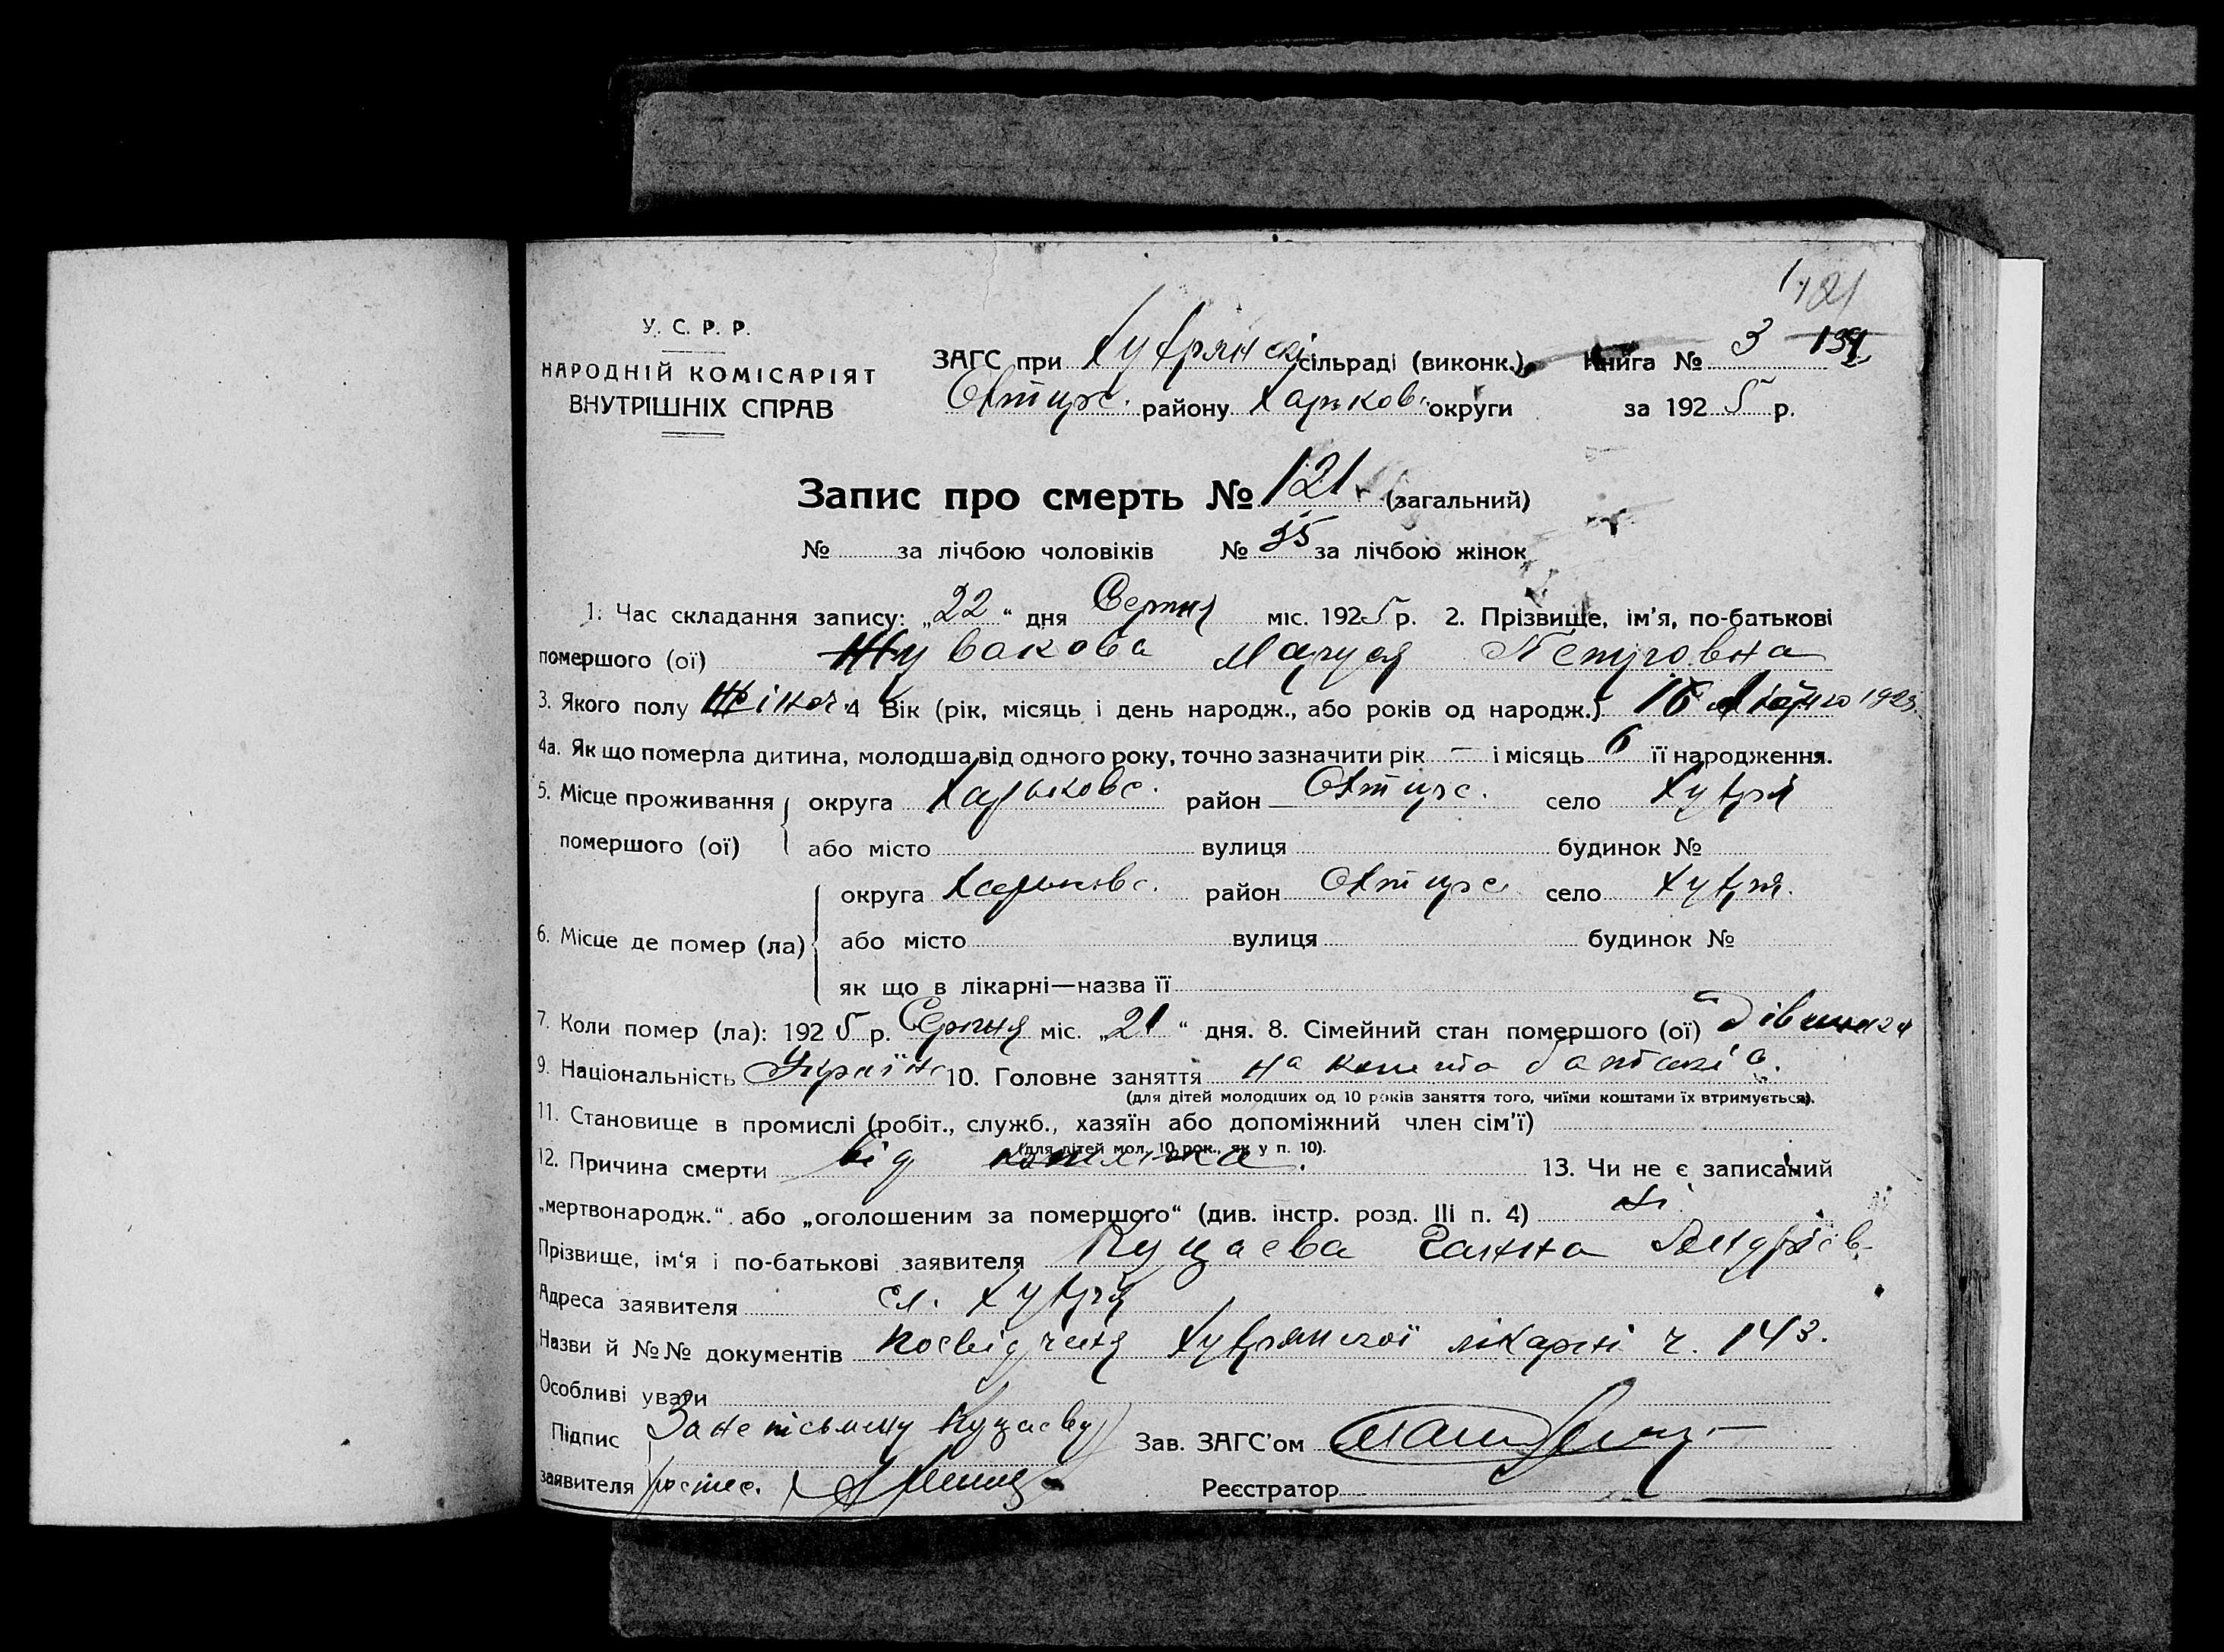 121
У. С. Р. Р.
НАРОДНІЙ КОМІСАРІЯТ
ВНУТРІШНІХ СПРАВ
ЗАГС при Хухрянскі сільраді (виконк.) Книга № 3
Охтирс. району Харьков. округи за 1925 р.
Запис про смерть № 121. (загальний)
№ за лічбою чоловіків № 35 за лічбою жінок
1. Час складання запису: „22“ дня Серпня міс. 1925 р. 2. Прізвище, ім'я, по-батькові
помершого (ої) Жувакова Маруся Петровна
3. Якого полу Жіноч. 4 Вік (рік, місяць і день народж., або років од народж.) 1925.
4а. Як що померла дитина, молодша від одного року, точно зазначити рік — і місяць 6 її народження.
5. Місце проживання округа Харьковс. район Охтирс. село Хухря
помершого (ої) або місто вулиця будинок №
округа Харьковс. район Охтирс. село Хухря.
6. Місце де помер (ла) або місто вулиця будинок №
як що в лікарні—назва її
7. Коли помер (ла): 1925 р. Серпня міс. „21“ дня. 8. Сімейний стан помершого (ої)
9. Національність Україн. 10. Головне заняття на кошти батьків.
(для дітей молодших од 10 років заняття того, чиїми коштами їх втримується).
11. Становище в промислі (робіт., служб., хазяїн або допоміжний член сім'ї)
(для дітей мол. 10 рок., як у п. 10).
12. Причина смерти від 13. Чи не є записаний
„мертвонародж.“ або „оголошеним за помершого“ (див. інстр. розд. III п. 4) ні
Прізвище, ім'я і по-батькові заявителя Куцаева Ганна Андрієв.
Адреса заявителя сл. Хухря
Назви й №№ документів Посвідченя Хухрянскої лікарні ч. 143.
Особливі уваги
Підпис За неписьмену Куцаеву Зав. ЗАГС'ом
заявителя роспис. Реєстратор